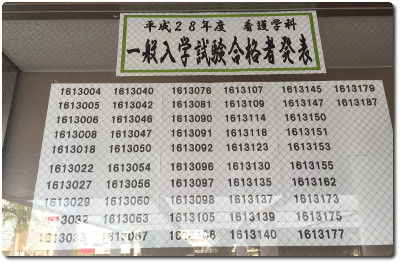 平成28年度　看護学科
一般入学試験合格者発表
1613004 1613040 1613076 1613107 1613145 1613179
1613005 1613042 1613081 1613109 1613147 1613187
1613006 1613046 1613090 1613114 1613150
1613008 1613047 1613091 1613118 1613151
1613018 1613050 1613092 1613123 1613153
1613022 1613054 1613096 1613130 1613155
1613027 1613056 1613097 1613135 1613162
1613029 1613060 1613098 1613137 1613173
1613032 1613063 1613105 1613139 1613175
1613067 1613140 1613177